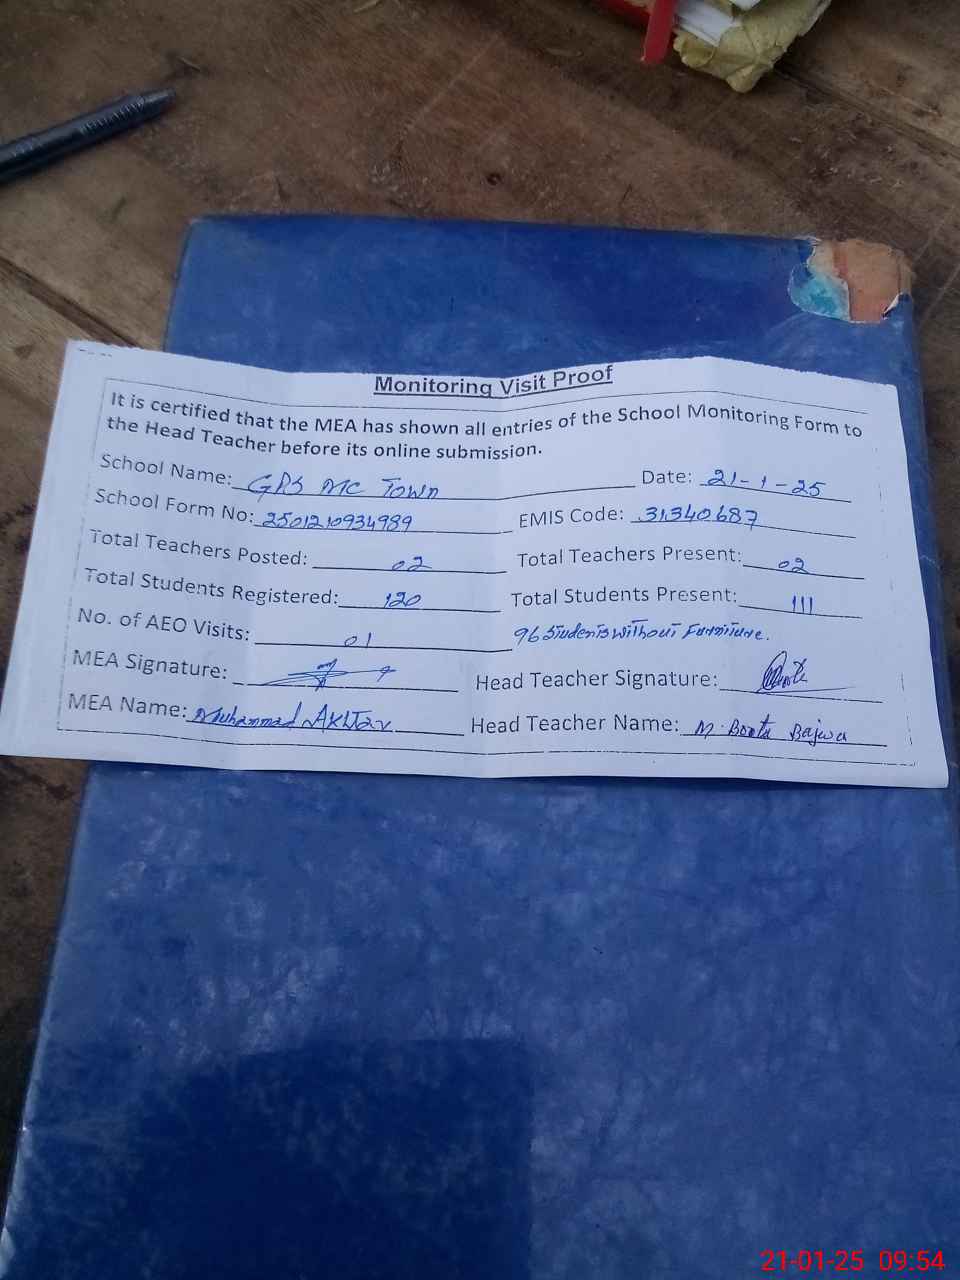 Monitoring Visit Proof
It is certified that the MEA has shown all entries of the School Monitoring Form to
the Head Teacher before its online submission.
School Name: GPS MC Town Date: 21-1-25
School Form No: 2501210934989 EMIS Code: 31340687
Total Teachers Posted: 02 Total Teachers Present: 02
Total Students Registered: 120 Total Students Present: 111
No. of AEO Visits: 01 96 Students without Furniture.
MEA Signature: Head Teacher Signature:
MEA Name: Muhammad Akhtar Head Teacher Name: M. Boota Bajwa
21-01-25 09:54